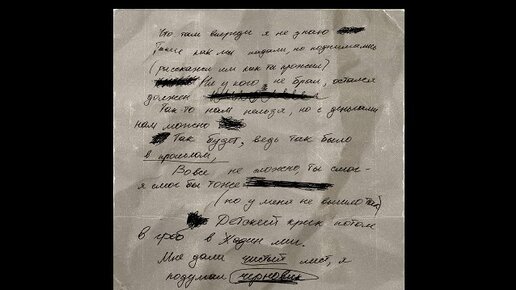 Что там впереди я не знаю
Такие как мы падали, но поднимались
(расскажи им как ты прожил)
Ни у кого не брал, остался
должен
Так-то нам нельзя, но с деньгами
нам можно
Так будет, ведь так было
в прошлом,
Вовсе не сложно, ты смог-
я смог бы тоже
(но у меня не вышло так)
Детский крик потом
в гроб в один миг.
Мне дали чистый лист, я
подумал черновик